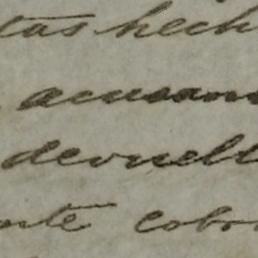 tas hech
acusam
devuelt
nte cobr